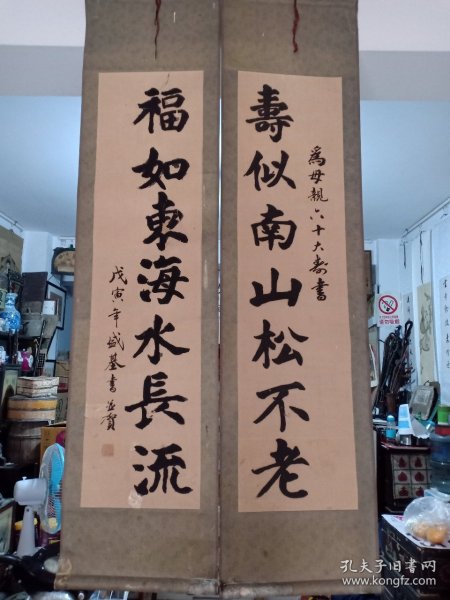 壽似南山松不老
為母親六十大壽書
福如東海水長流
戊寅年盛基書並賀
請勿吸煙
孔夫子旧书网
www.kongfz.com